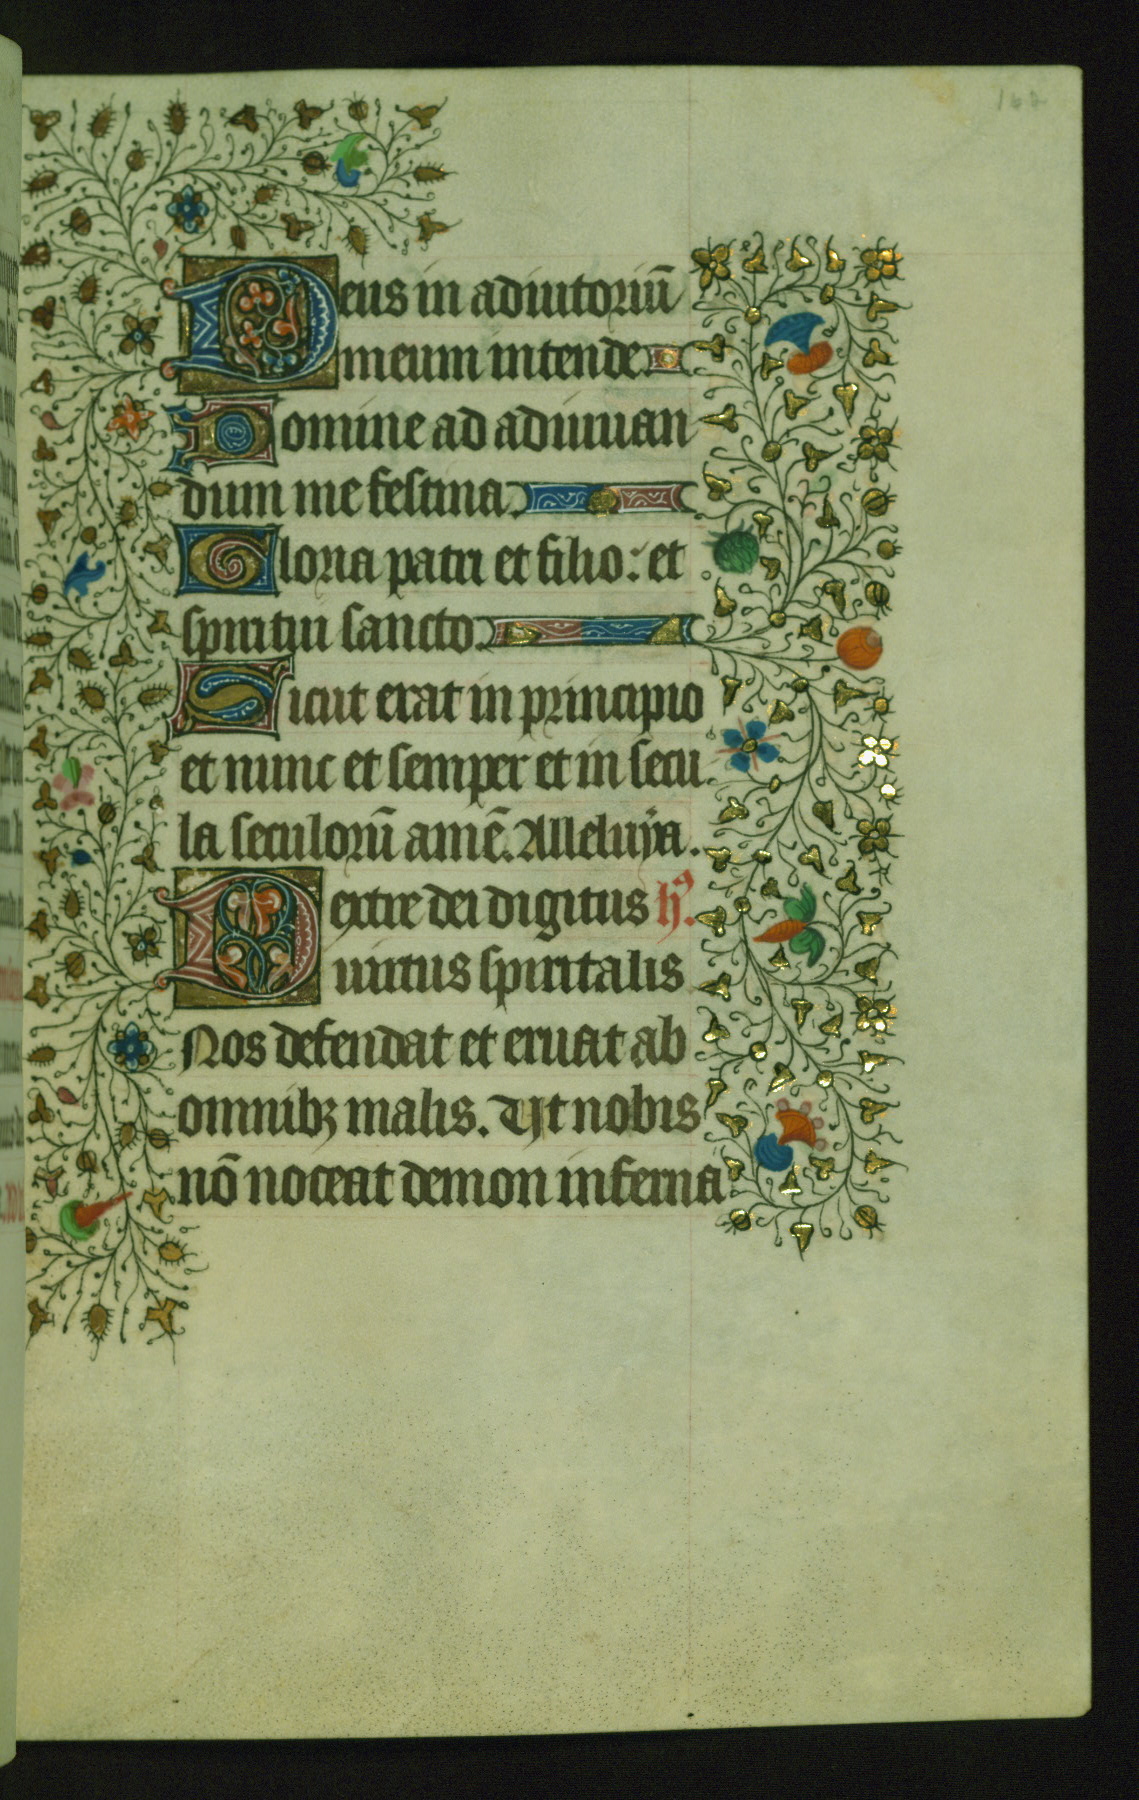 162
Deus in adiutoriū
meum intende
Domine ad adiuuan
dum me festina.
Gloria patri et filio: et
spiritui sancto.
Sicut erat in principio
et nunc et semper et in secu
la seculorū amē. Alleluya.
Dextre dei digitus hꝰ.
uirtus spiritalis
Nos defendat et eruat ab
omnibꝫ malis. Ut nobis
nō noceat demon inferna